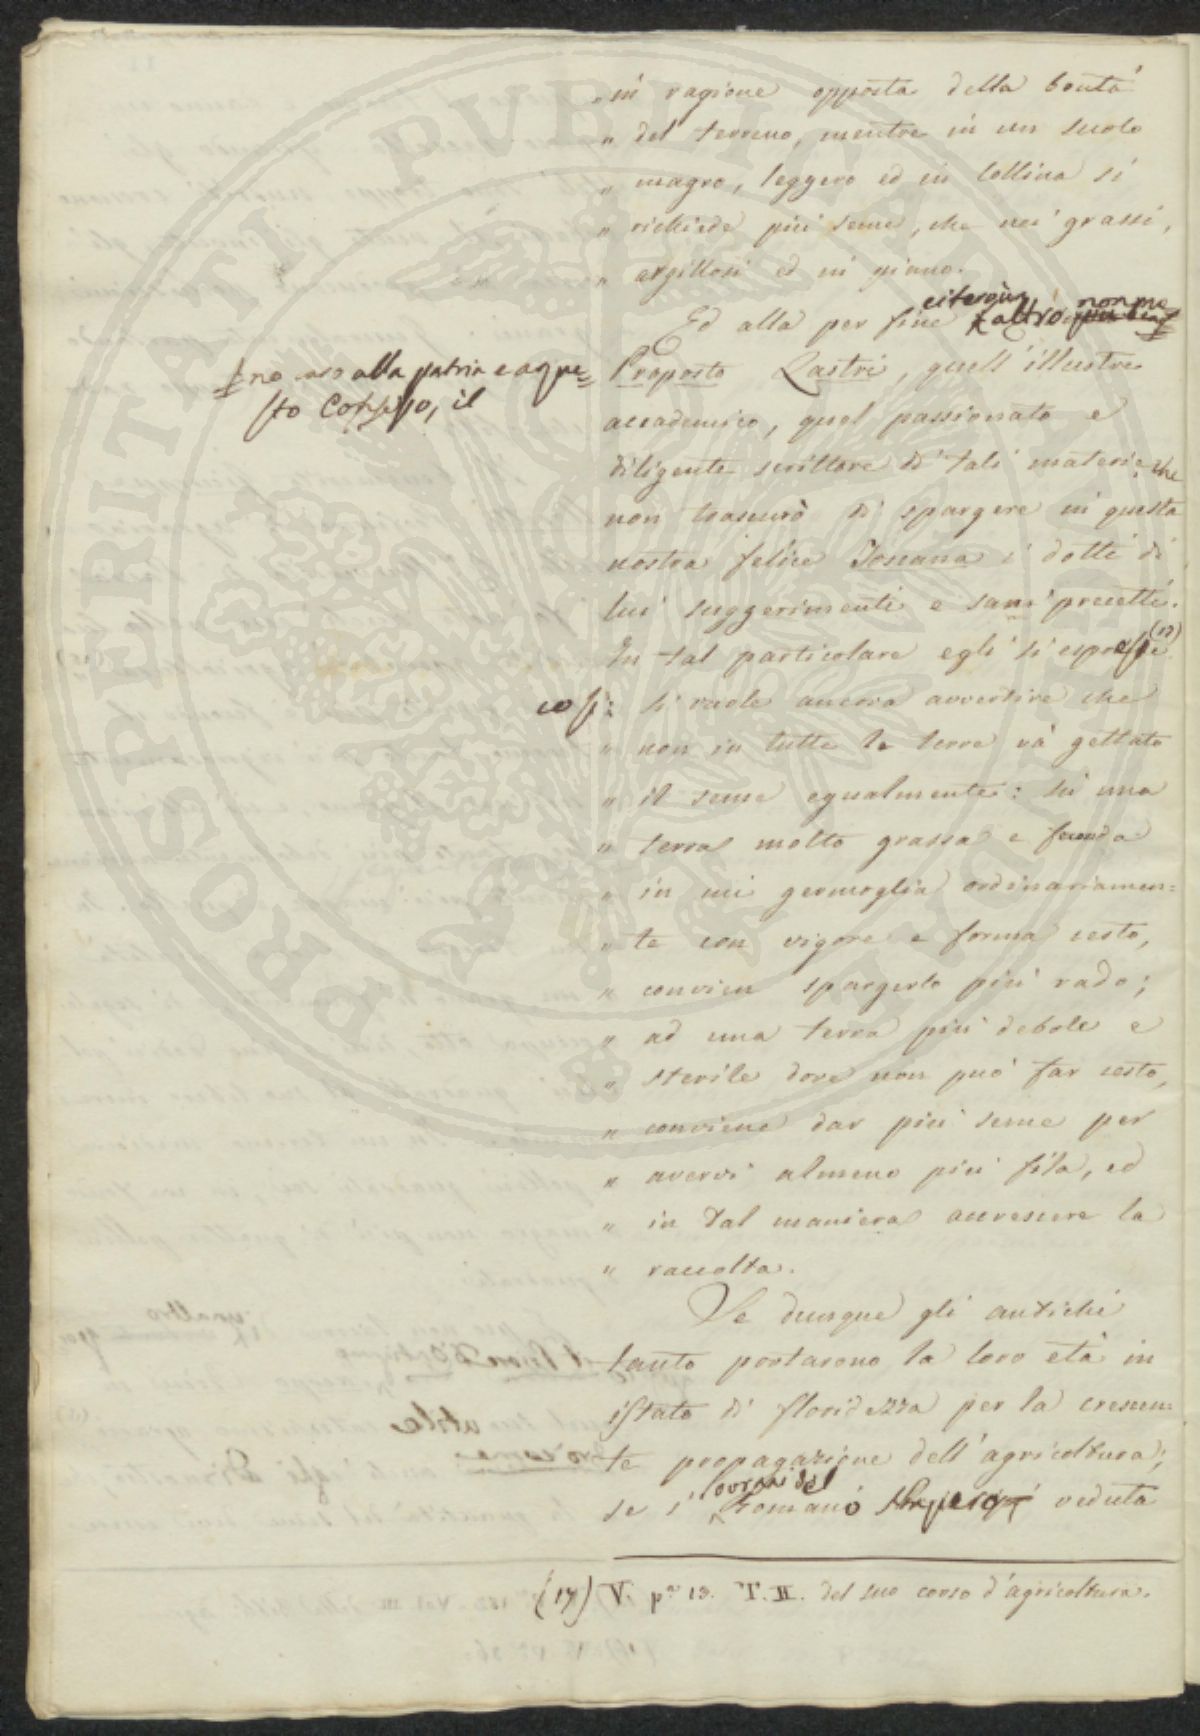 „ in ragione opposta della bontà
„ del terreno, mentre in un suolo
„ magro, leggero ed in collina si
„ richiede più seme, che nei grassi,
„ argillosi ed in piano.
Ed alla per fine citerò un altro non me=
= no caro alla patria e a que=
sto Consesso, il
Proposto Lastri, quell'illustre
accademico, quel passionato e
diligente scrittore di tali materie, che
non trascurò di spargere in questa
nostra felice Toscana i dotti di
lui suggerimenti e sani precetti.
In tal particolare egli si espresse (17)
così: si vuole ancora avvertire che
„ non in tutte le terre và gettato
„ il seme egualmente: in una
„ terra molto grassa e feconda
„ in cui germoglia ordinariamen=
„ te con vigore e forma cesto,
„ convien spargerlo più rado;
„ ad una terra più debole e
„ sterile dove non può far cesto,
„ conviene dar più seme per
„ avervi almeno più fila, ed
„ in tal maniera accrescere la
„ raccolta.
Se dunque gli antichi
tanto portarono la loro età in
istato di floridezza per la crescen=
te propagazione dell'agricoltura;
se i sovrani del Romano veduta
(17) V. p.ª 13. T. II. del suo corso d'agricoltura.
PROSPERITATI PUBLICAE AUGENDAE